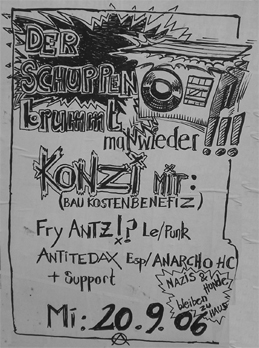 DER
SCHUPPEN
brummt
mal wieder !!!
KONZI MIT:
(BAUKOSTENBENEFIZ)
Fry ANTZ!? Le/Punk
ANTITEDAX Esp/ANARCHO HC
+ Support
NAZIS & Hunde
bleiben zu
Haus
Mi: 20.9.06